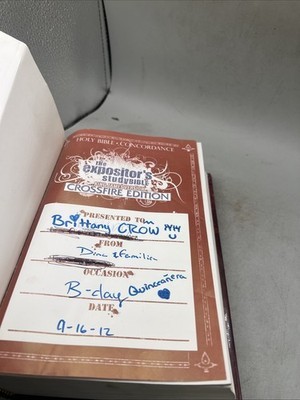 HOLY BIBLE • CONCORDANCE
the
expositor's
studybible
CROSSFIRE EDITION
PRESENTED TO
Brittany CROW
FROM
Dina & Familia
OCCASION
B-day Quinceañera
DATE
9-16-12